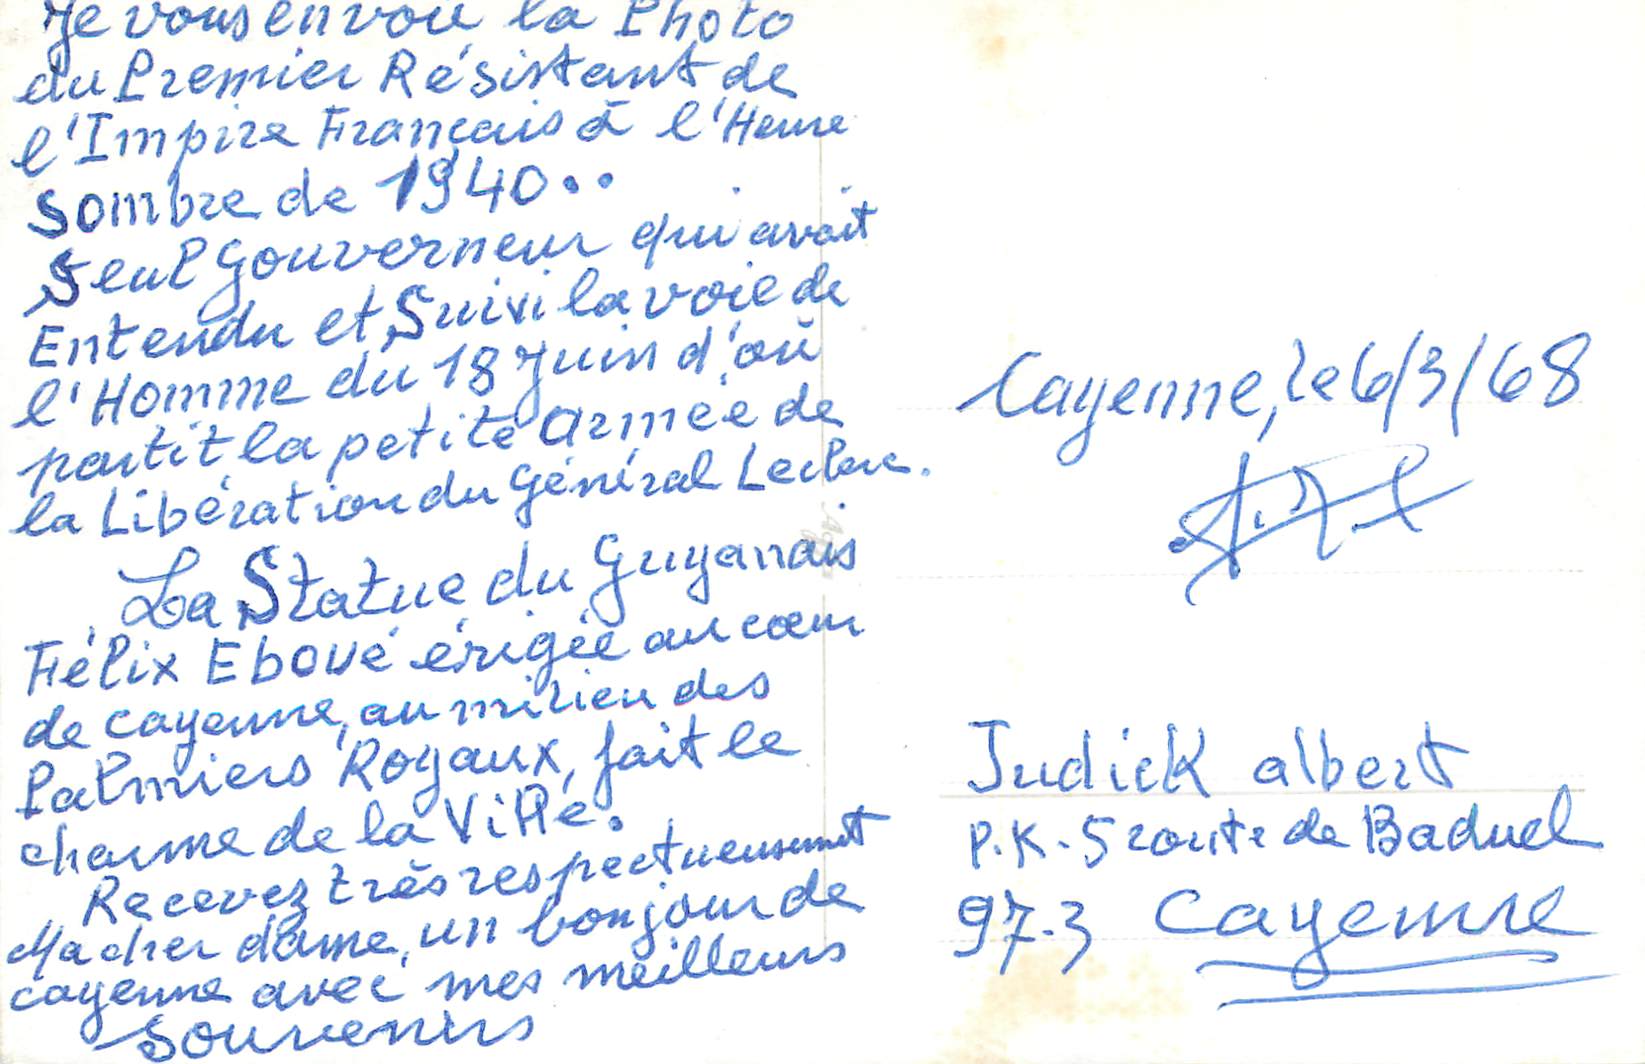 Je vous envoie la Photo
du Premier Résistant de
l'Impire Français à l'Heure
Sombre de 1940..
Seul Gouverneur qui avait
Entendu et Suivi la voie de
l'Homme du 18 Juin d'où
partit la petite Armée de
la Libération du Général Leclerc.
La Statue du Guyanais
Félix Eboué érigée au cœur
de cayenne, au milieu des
Palmiers Royaux, fait le
charme de la Ville.
Recevez très respectueusement
Ma cher dame, un bonjour de
cayenne avec mes meilleurs
souvenirs
Cayenne, le 6/3/68
Judick albert
P.K. 5 route de Baduel
97.3 Cayenne